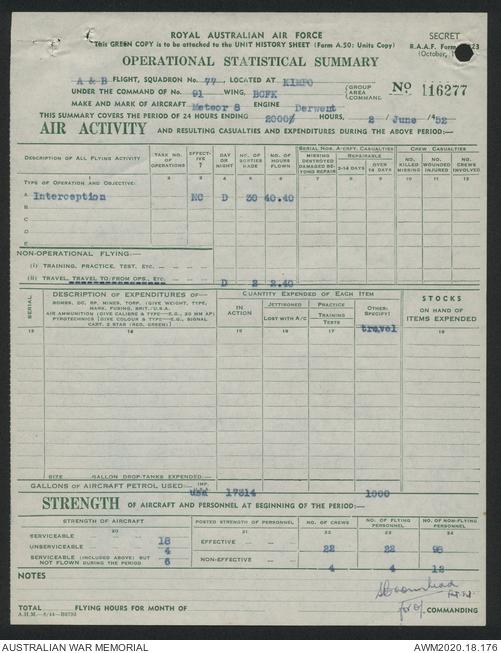 ROYAL AUSTRALIAN AIR FORCE
SECRET
This GREEN COPY is to be attached to the UNIT HISTORY SHEET (Form A.50: Units Copy)
R.A.A.F. Form 23
(October,
OPERATIONAL STATISTICAL SUMMARY
A & B FLIGHT, SQUADRON No. 77, LOCATED AT KIMPO
UNDER THE COMMAND OF No. 91 WING, BCFK (GROUP AREA COMMAND No 116277
MAKE AND MARK OF AIRCRAFT Meteor 8 ENGINE Derwent
THIS SUMMARY COVERS THE PERIOD OF 24 HOURS ENDING 2000 HOURS, 2 / June /1952
AIR ACTIVITY AND RESULTING CASUALTIES AND EXPENDITURES DURING THE ABOVE PERIOD:—
DESCRIPTION OF ALL FLYING ACTIVITY TASK NO. OF OPERATIONS EFFECTIVE ? DAY OR NIGHT NO. OF SORTIES HOURS FLOWN SERIAL NOS. A'CRFT. CASUALTIES CREW CASUALTIES
MISSING DESTROYED DAMAGED BEYOND REPAIR REPAIRABLE 2-14 DAYS OVER 14 DAYS NO. KILLED MISSING NO. WOUNDED INJURED NO. CREWS INVOLVED
1 2 3 4 5 6 7 8 9 10 11 12
TYPE OF OPERATION AND OBJECTIVE:
A Interception NC D 30 40.40
B
C
D
E
NON-OPERATIONAL FLYING:—
(i) TRAINING, PRACTICE, TEST, ETC.
(ii) TRAVEL, TRAVEL TO/FROM OPS., ETC. D 2 2.40
SERIAL DESCRIPTION OF EXPENDITURES OF— QUANTITY EXPENDED OF EACH ITEM STOCKS ON HAND OF ITEMS EXPENDED
BOMBS, DC, RP, MINES, TORP. (GIVE WEIGHT, TYPE, MARK, FUSING, BRIT./U.S.A.
AIR AMMUNITION (GIVE CALIBRE & TYPE—E.G., 20 MM AP)
PYROTECHNICS (GIVE COLOUR & TYPE—E.G., SIGNAL CART. 2 STAR (RED, GREEN))
IN ACTION JETTISONED LOST WITH A/C PRACTICE TRAINING TESTS OTHER: SPECIFY)
travel
13 14 15 16 17 18
SIZE GALLON DROP-TANKS EXPENDED—
GALLONS OF AIRCRAFT PETROL USED:— IMP. USA 17314 1000
STRENGTH OF AIRCRAFT AND PERSONNEL AT BEGINNING OF THE PERIOD:—
STRENGTH OF AIRCRAFT POSTED STRENGTH OF PERSONNEL NO. OF CREWS NO. OF FLYING PERSONNEL NO. OF NON-FLYING PERSONNEL
20 21 22 23 24
SERVICEABLE 18 EFFECTIVE 22 22 98
UNSERVICEABLE 4
SERVICEABLE (INCLUDED ABOVE) BUT NOT FLOWN DURING THE PERIOD 6 NON-EFFECTIVE 4 4 12
NOTES
for o/ COMMANDING
TOTAL FLYING HOURS FOR MONTH OF
AUSTRALIAN WAR MEMORIAL
AWM2020.18.176